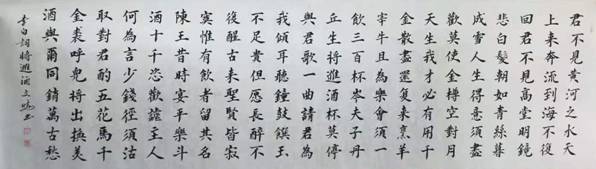 君不見黃河之水天
上来奔流到海不復
回君不見高堂明鏡
悲白髮朝如青絲暮
成雪人生得意須盡
歡莫使金樽空對月
天生我才必有用千
金散盡還复来烹羊
宰牛且為樂會須一
飲三百杯岑夫子丹
丘生將進酒杯莫停
與君歌一曲請君為
我傾耳聽鐘鼓饌玉
不足貴但愿長醉不
復醒古来聖賢皆寂
寞惟有飲者留其名
陳王昔時宴平樂斗
酒十千恣歡謔主人
何為言少錢徑須沽
取對君酌五花馬千
金裘呼兒將出換美
酒與爾同銷萬古愁
李白詞將進酒文